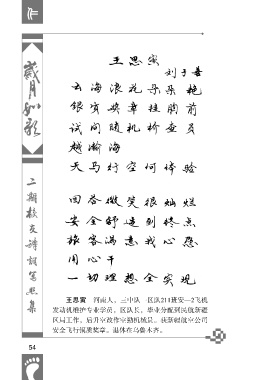 作
岁月如歌
二期校友诗词写照集
王思寅
刘子善
云海浪花朵朵艳
银宾奖章挂胸前
试问随机检查员
越瀚海
天马行空何体验
回答微笑很灿烂
安全舒适到终点
旅客满意我心愿
用心干
一切理想全实现
王思寅 河南人，三中队一区队211班安—2飞机
发动机维护专业学员。区队长，毕业分配到民航新疆
区局工作，后升空改作空勤机械员。获新疆航空公司
安全飞行银质奖章。退休在乌鲁木齐。
54